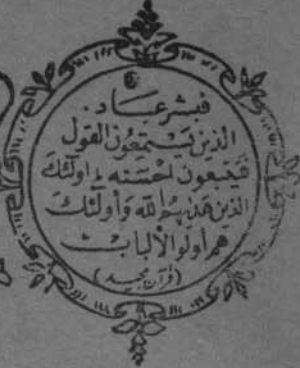 فبشر عباد.
الذين يستمعون القول
فيتبعون احسنه ط اولئك
الذين هدىهم الله و أولئك
هم أولو الألباب
(قرآن مجيد)